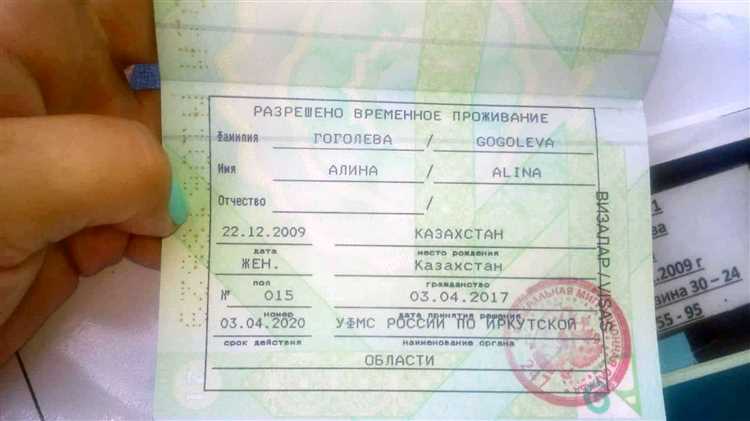 РАЗРЕШЕНО ВРЕМЕННОЕ ПРОЖИВАНИЕ
Фамилия ГОГОЛЕВА / GOGOLEVA
Имя АЛИНА / ALINA
Отчество /
22.12.2009 КАЗАХСТАН
дата место рождения
ЖЕН. Казахстан
пол гражданство
№ 015 03.04.2017
номер дата принятия решения
03.04.2020 УФМС РОССИИ ПО ИРКУТСКОЙ
срок действия наименование органа
ОБЛАСТИ
ВИЗАЛАР / VISAS
1
ва
.2009 г
зина 30 – 24
55 - 95